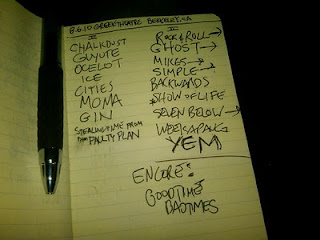 8.6.10 GREEK THEATRE BERKELEY, CA
I
CHALKDUST
GUYUTE
OCELOT
ICE
CITIES
MOMA
GIN
STEALING TIME FROM
THE FAULTY PLAN
II
ROCK & ROLL
GHOST →
MIKES →
SIMPLE →
BACKWARDS
SHOW OF LIFE
SEVEN BELOW →
WEEKAPAUG
YEM
ENCORE:
GOODTIME
BADTIMES